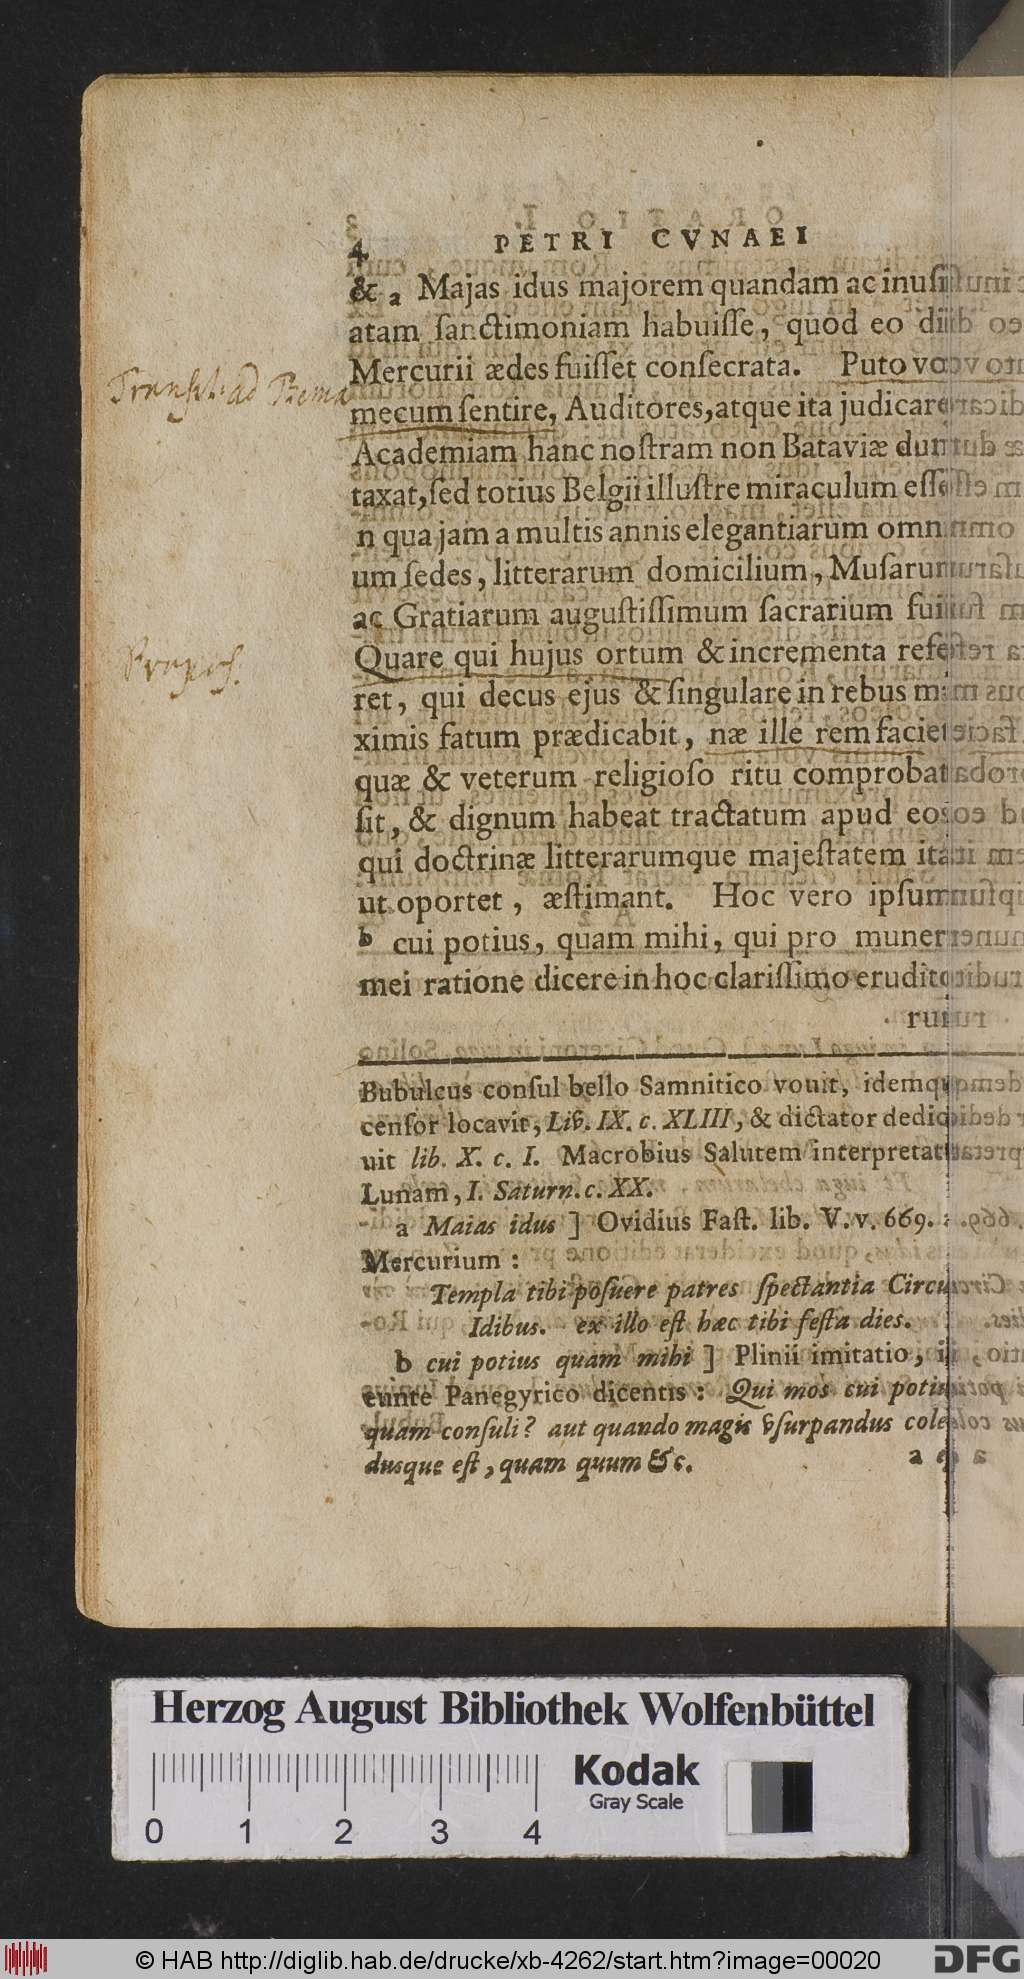 4 PETRI CVNAEI
& a Majas idus majorem quandam ac inusi
atam sanctimoniam habuisse, quod eo di
Mercurii ædes fuisset consecrata. Puto vo
Transit. ad Thema
mecum sentire, Auditores, atque ita judicare
Academiam hanc nostram non Bataviæ dun
taxat, sed totius Belgii illustre miraculum esse
n qua jam a multis annis elegantiarum omn
um sedes, litterarum domicilium, Musarum
ac Gratiarum augustissimum sacrarium fui
Quare qui hujus ortum & incrementa refe
Proposit.
ret, qui decus ejus & singulare in rebus ma
ximis fatum prædicabit, næ ille rem faciet
quæ & veterum religioso ritu comprobat
sit, & dignum habeat tractatum apud eos
qui doctrinæ litterarumque majestatem ita
ut oportet, æstimant. Hoc vero ipsum
b cui potius, quam mihi, qui pro muner
mei ratione dicere in hoc clarissimo erudito
ru
Bubulcus consul bello Samnitico vovit, idemq
censor locavit, Lib. IX. c. XLIII, & dictator dedic
vit lib. X. c. I. Macrobius Salutem interpretat
Lunam, I. Saturn. c. XX.
a Maias idus ] Ovidius Fast. lib. V. v. 669.
Mercurium :
Templa tibi posuere patres spectantia Circum
Idibus. ex illo est hæc tibi festa dies.
b cui potius quam mihi ] Plinii imitatio, i
eunte Panegyrico dicentis : Qui mos cui potius
quam consuli? aut quando magis vsurpandus cole
dusque est, quam quum &c.
a
Herzog August Bibliothek Wolfenbüttel
0 1 2 3 4
Kodak
Gray Scale
© HAB http://diglib.hab.de/drucke/xb-4262/start.htm?image=00020
DFG